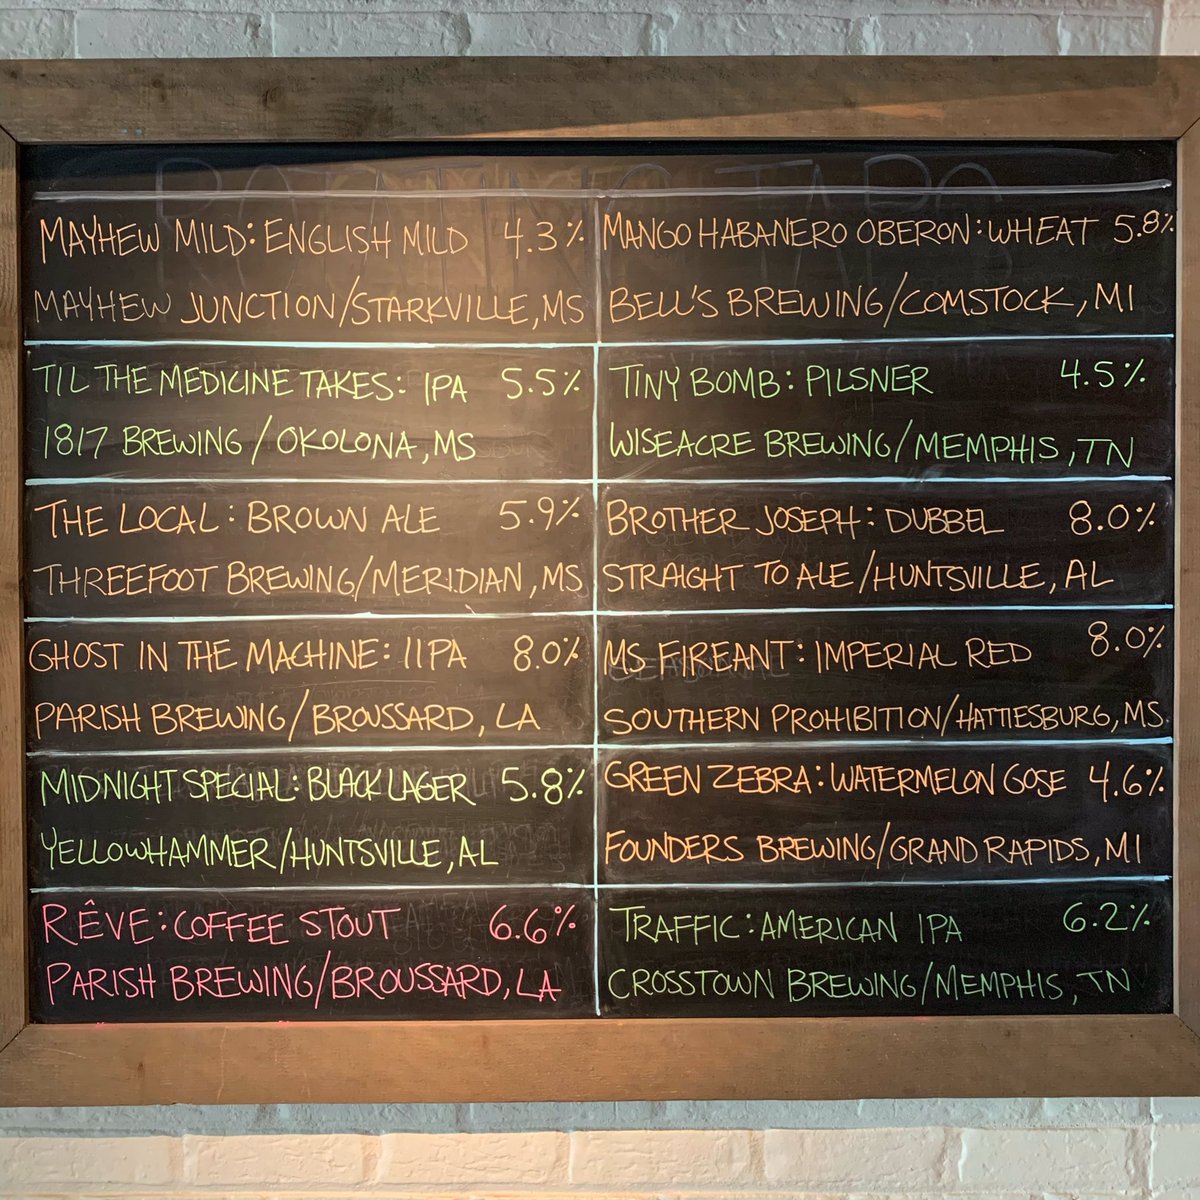 ROTATING TABS
MAYHEW MILD: ENGLISH MILD 4.3%
MAYHEW JUNCTION/STARKVILLE, MS
TIL THE MEDICINE TAKES: IPA 5.5%
1817 BREWING / OKOLONA, MS
THE LOCAL: BROWN ALE 5.9%
THREEFOOT BREWING/MERIDIAN, MS
GHOST IN THE MACHINE: IIPA 8.0%
PARISH BREWING/BROUSSARD, LA
MIDNIGHT SPECIAL: BLACK LAGER 5.8%
YELLOWHAMMER/HUNTSVILLE, AL
RÊVE: COFFEE STOUT 6.6%
PARISH BREWING/BROUSSARD, LA
MANGO HABANERO OBERON: WHEAT 5.8%
BELL'S BREWING/COMSTOCK, MI
TINY BOMB: PILSNER 4.5%
WISEACRE BREWING/MEMPHIS, TN
BROTHER JOSEPH: DUBBEL 8.0%
STRAIGHT TO ALE/HUNTSVILLE, AL
MS FIREANT: IMPERIAL RED 8.0%
SOUTHERN PROHIBITION/HATTIESBURG, MS
GREEN ZEBRA: WATERMELON GOSE 4.6%
FOUNDERS BREWING/GRAND RAPIDS, MI
TRAFFIC: AMERICAN IPA 6.2%
CROSSTOWN BREWING/MEMPHIS, TN